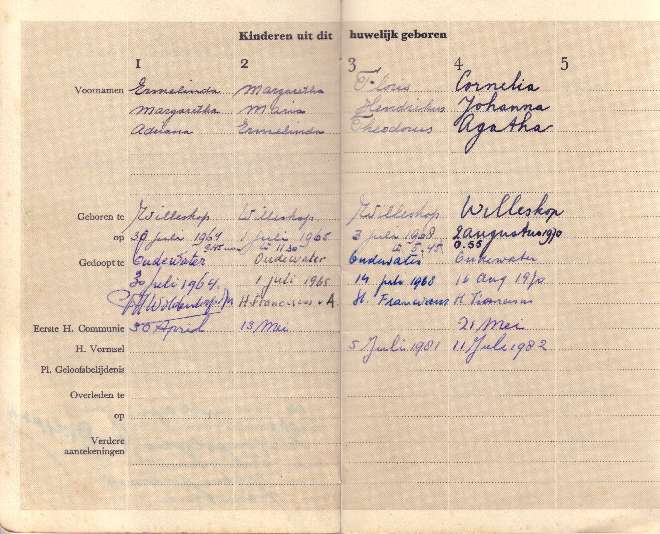 Kinderen uit dit huwelijk geboren
1 2 3 4 5
Voornamen Ermelinda Margaretha Floris Cornelia
Margaretha Maria Hendricus Johanna
Adriana Ermelinda Theodorus Agatha
Geboren te Willeskop Willeskop Willeskop Willeskop
op 30 juli 1964 1 juli 1965 3 juli 1968 2 augustus 1970
9.45 11.30 5.45 0.55
Gedoopt te Oudewater Oudewater Oudewater Oudewater
30 juli 1964. 1 juli 1965 14 juli 1968 16 aug 1970
H. Franciscus v. A. H. Franciscus H. Franciscus
Eerste H. Communie 30 April 13 Mei 21 Mei
H. Vormsel 5 Juli 1981 11 Juli 1982
Pl. Geloofsbelijdenis
Overleden te
op
Verdere
aantekeningen